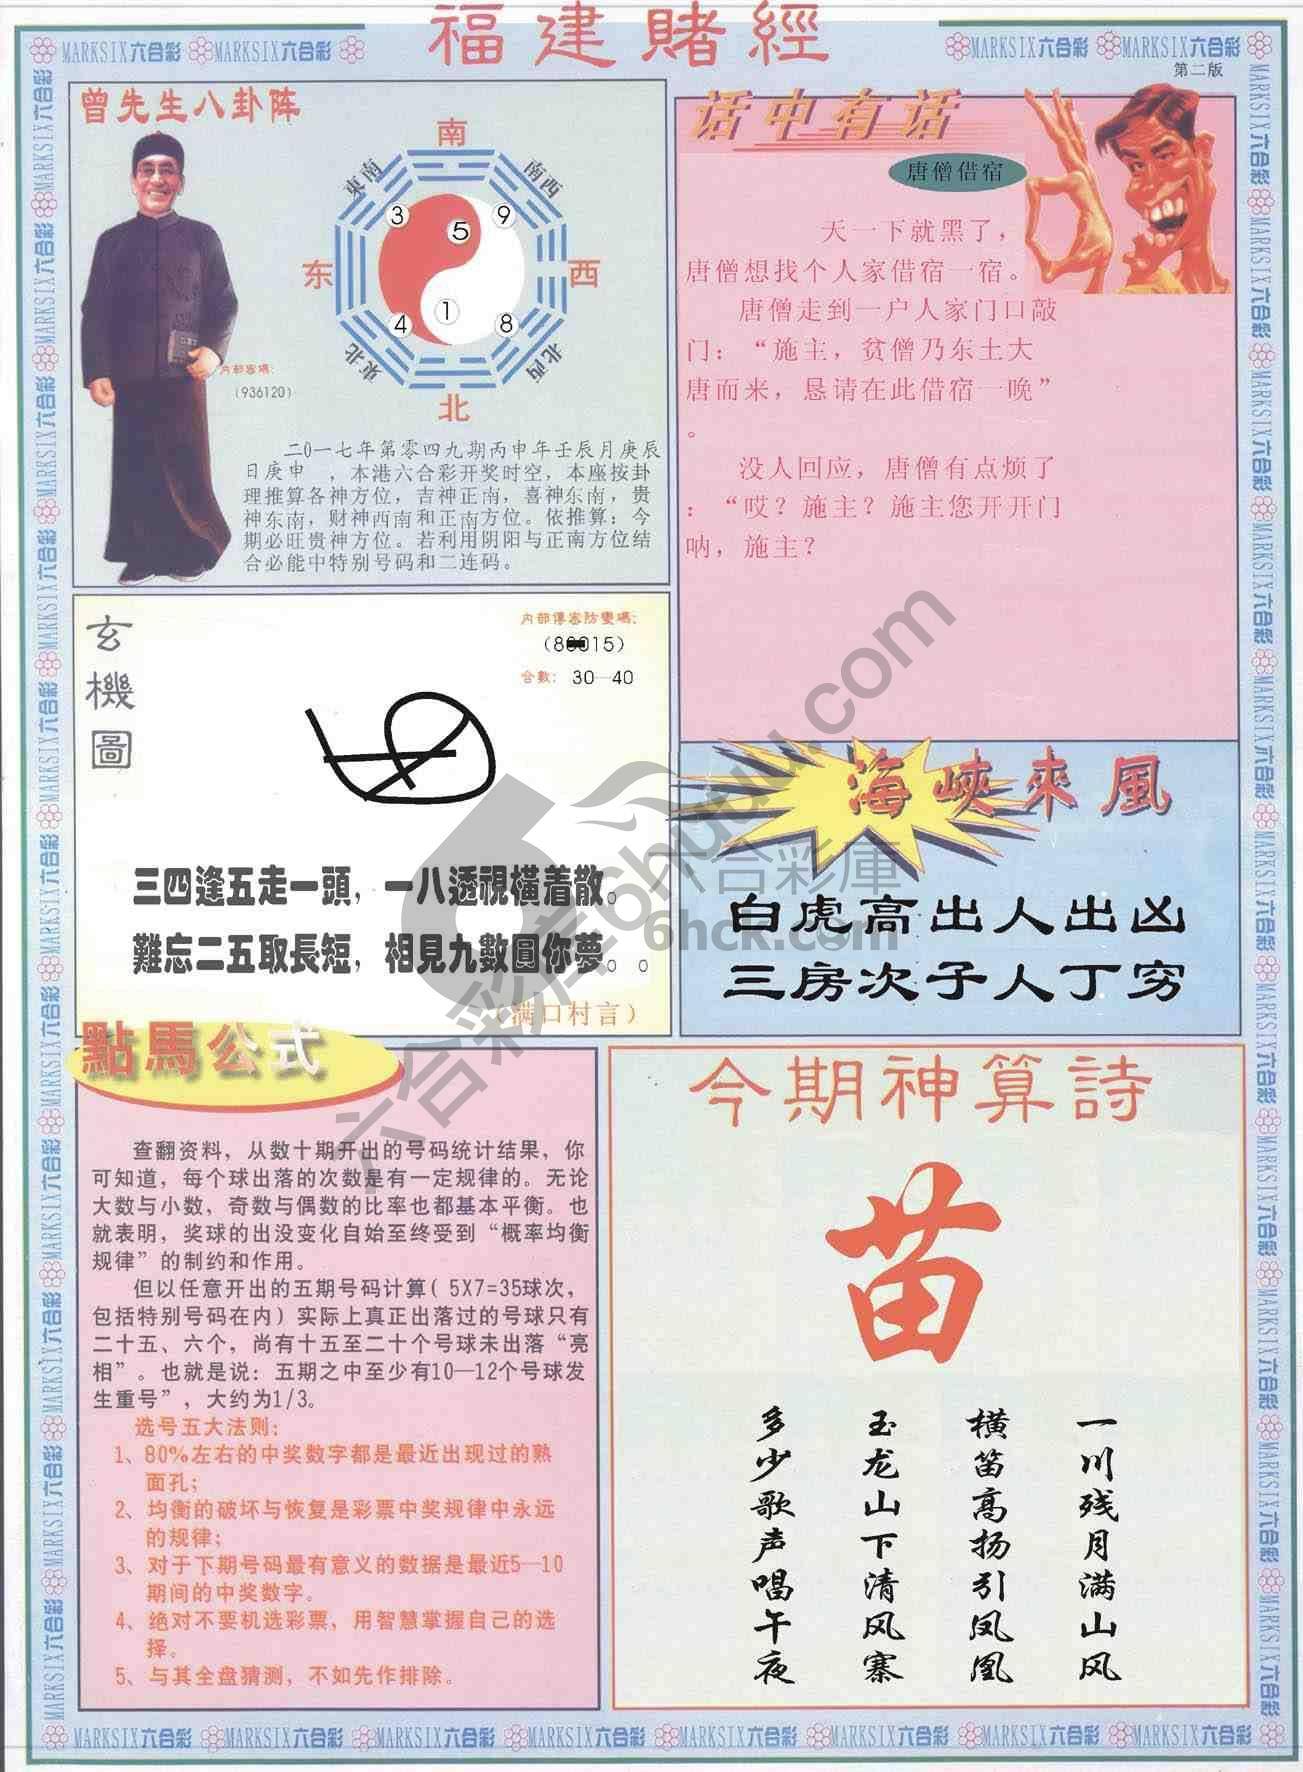 福建賭經
MARKSIX六合彩 MARKSIX六合彩
MARKSIX六合彩 MARKSIX六合彩
第二版
曾先生八卦阵
南
東南
南西
3
9
5
东
西
1
4
8
東北
北西
北
内部密碼:
(936120)
二0一七年第零四九期丙申年壬辰月庚辰
日庚申 ,本港六合彩开奖时空,本座按卦
理推算各神方位,吉神正南,喜神东南,贵
神东南,财神西南和正南方位。依推算:今
期必旺贵神方位。若利用阴阳与正南方位结
合必能中特别号码和二连码。
话中有话
唐僧借宿
天一下就黑了,
唐僧想找个人家借宿一宿。
唐僧走到一户人家门口敲
门:“施主,贫僧乃东土大
唐而来,恳请在此借宿一晚”
。
没人回应,唐僧有点烦了
:“哎?施主?施主您开开门
呐,施主?
玄機圖
内部傳密防變碼:
合數: 30—40
三四逢五走一頭,一八透視橫着散。
難忘二五取長短,相見九數圓你夢。。
(满口村言)
海峽來風
白虎高出人出凶
三房次子人丁穷
六合彩库6hquu.com
六合彩庫
6hck.com
點馬公式
查翻资料,从数十期开出的号码统计结果,你
可知道,每个球出落的次数是有一定规律的。无论
大数与小数,奇数与偶数的比率也都基本平衡。也
就表明,奖球的出没变化自始至终受到“概率均衡
规律”的制约和作用。
但以任意开出的五期号码计算(5X7=35球次,
包括特别号码在内)实际上真正出落过的号球只有
二十五、六个,尚有十五至二十个号球未出落“亮
相”。也就是说:五期之中至少有10—12个号球发
生重号”,大约为1/3。
选号五大法则:
1、80%左右的中奖数字都是最近出现过的熟
面孔;
2、均衡的破坏与恢复是彩票中奖规律中永远
的规律;
3、对于下期号码最有意义的数据是最近5—10
期间的中奖数字。
4、绝对不要机选彩票,用智慧掌握自己的选
择。
5、与其全盘猜测,不如先作排除。
今期神算詩
苗
一川残月满山风
横笛高扬引凤凰
玉龙山下清风寨
多少歌声唱午夜
MARKSIX六合彩 MARKSIX六合彩 MARKSIX六合彩 MARKSIX六合彩 MARKSIX六合彩 MARKSIX六合彩 MARKSIX六合彩 MARKSIX六合彩